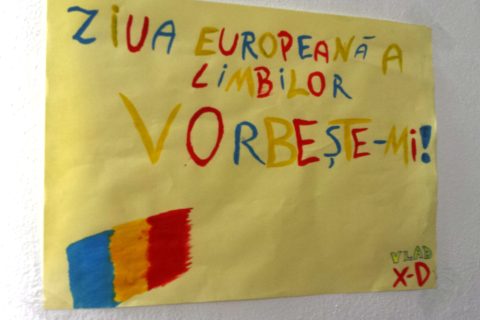 ZIUA EUROPEANĂ A
LIMBILOR
VORBEȘTE-MI!
VLAD
X-D